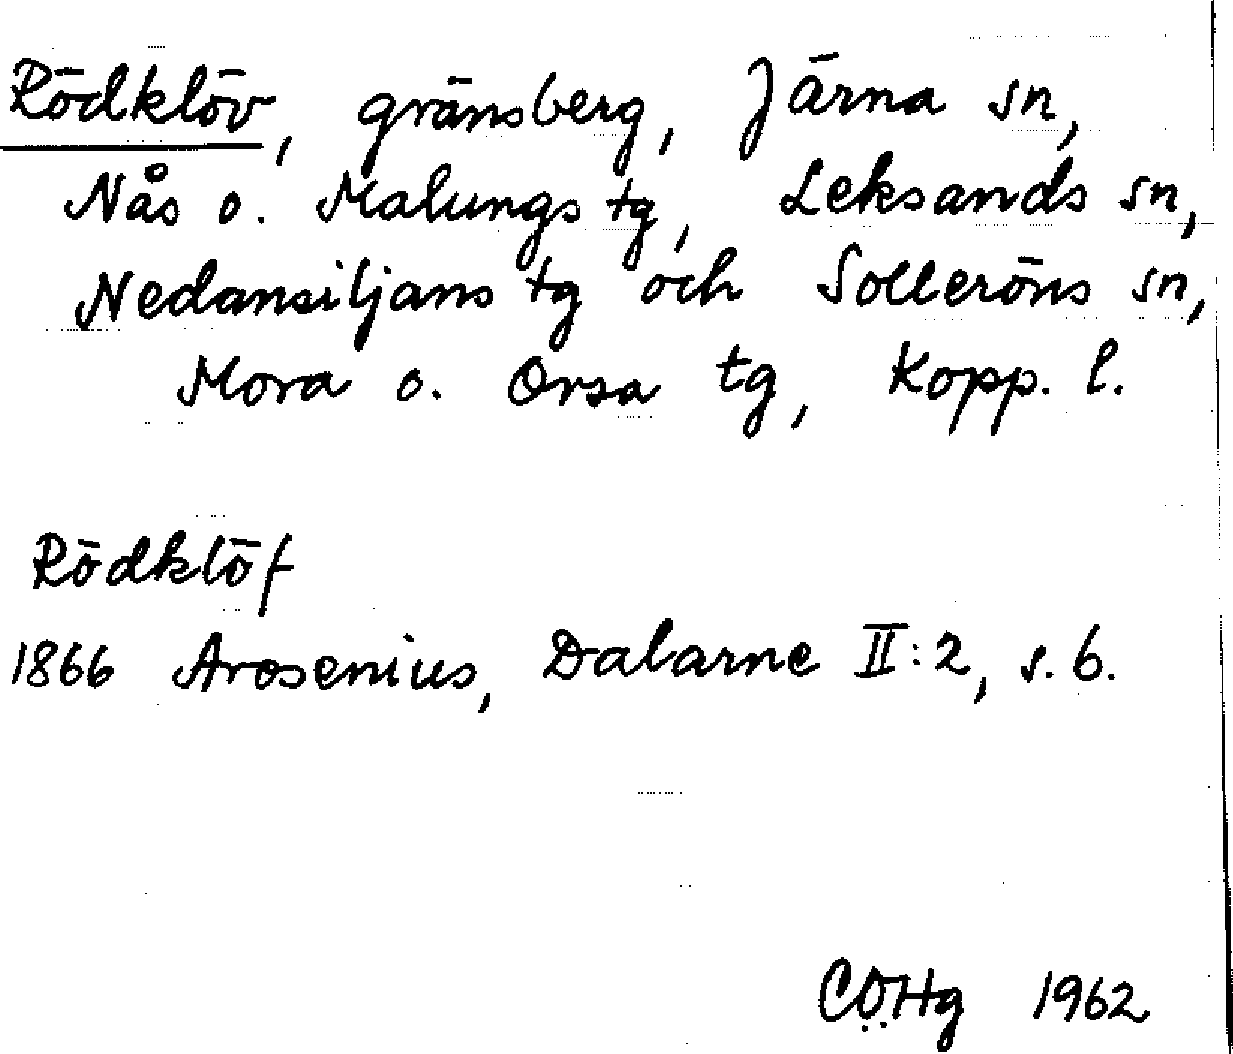 Rödklöv, gränsberg, Järna sn,
Nås o. Malungs tg, Leksands sn,
Nedansiljans tg och Solleröns sn,
Mora o. Orsa tg, Kopp. l.
Rödklöf
1866 Arosenius, Dalarne II:2, s. 6.
CÖHg 1962